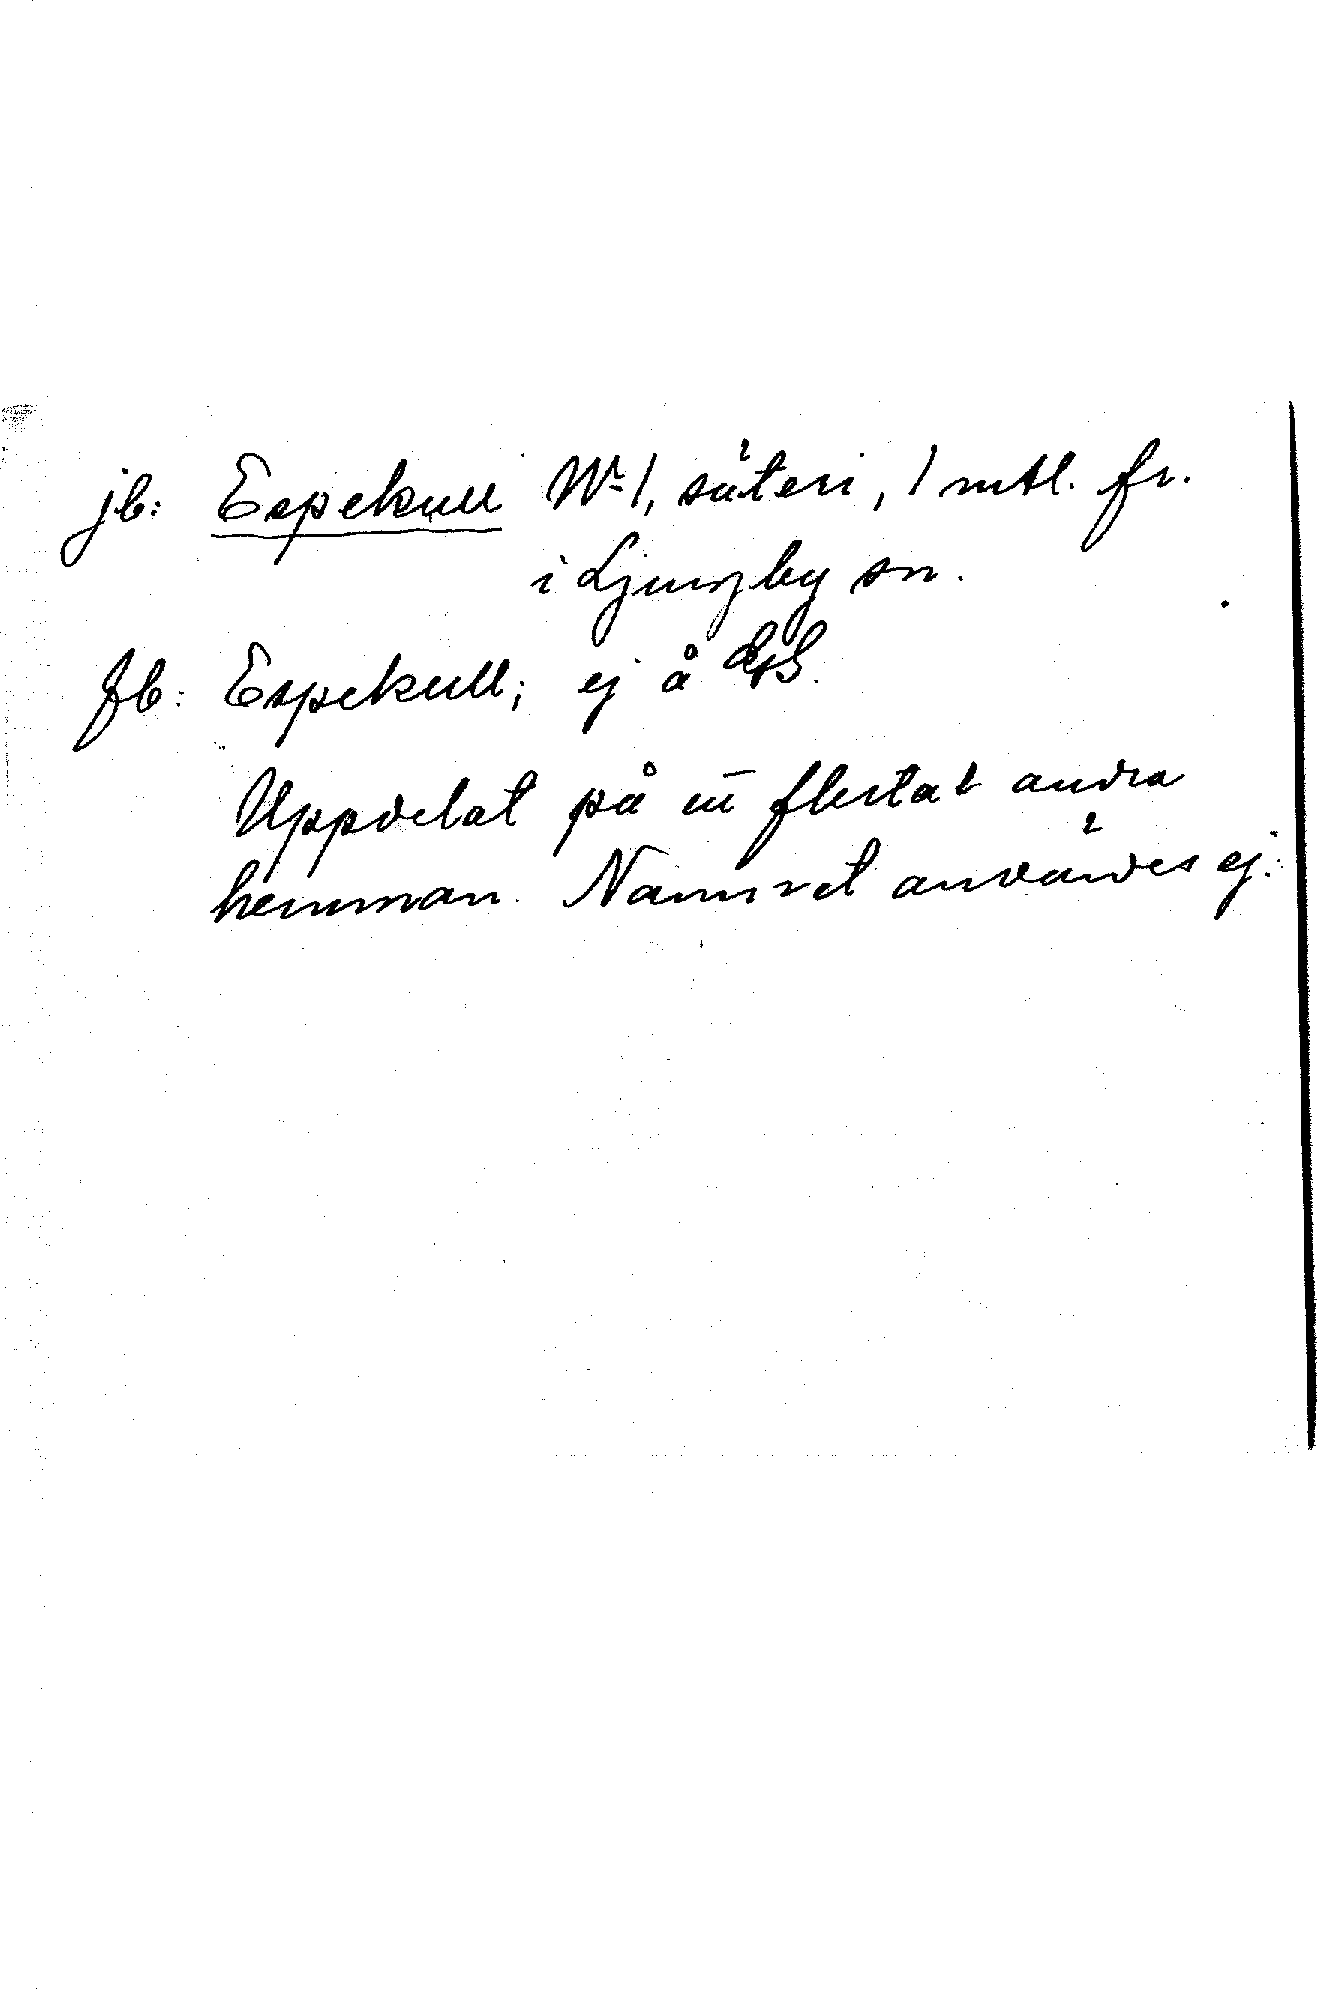 jb: Espekull Nr 1, säteri, 1 mtl. fr.
i Ljungby sn.
fb: Espekull; ej å GS.
Uppdelat på en flertal andra
hemman. Namnet användes ej.